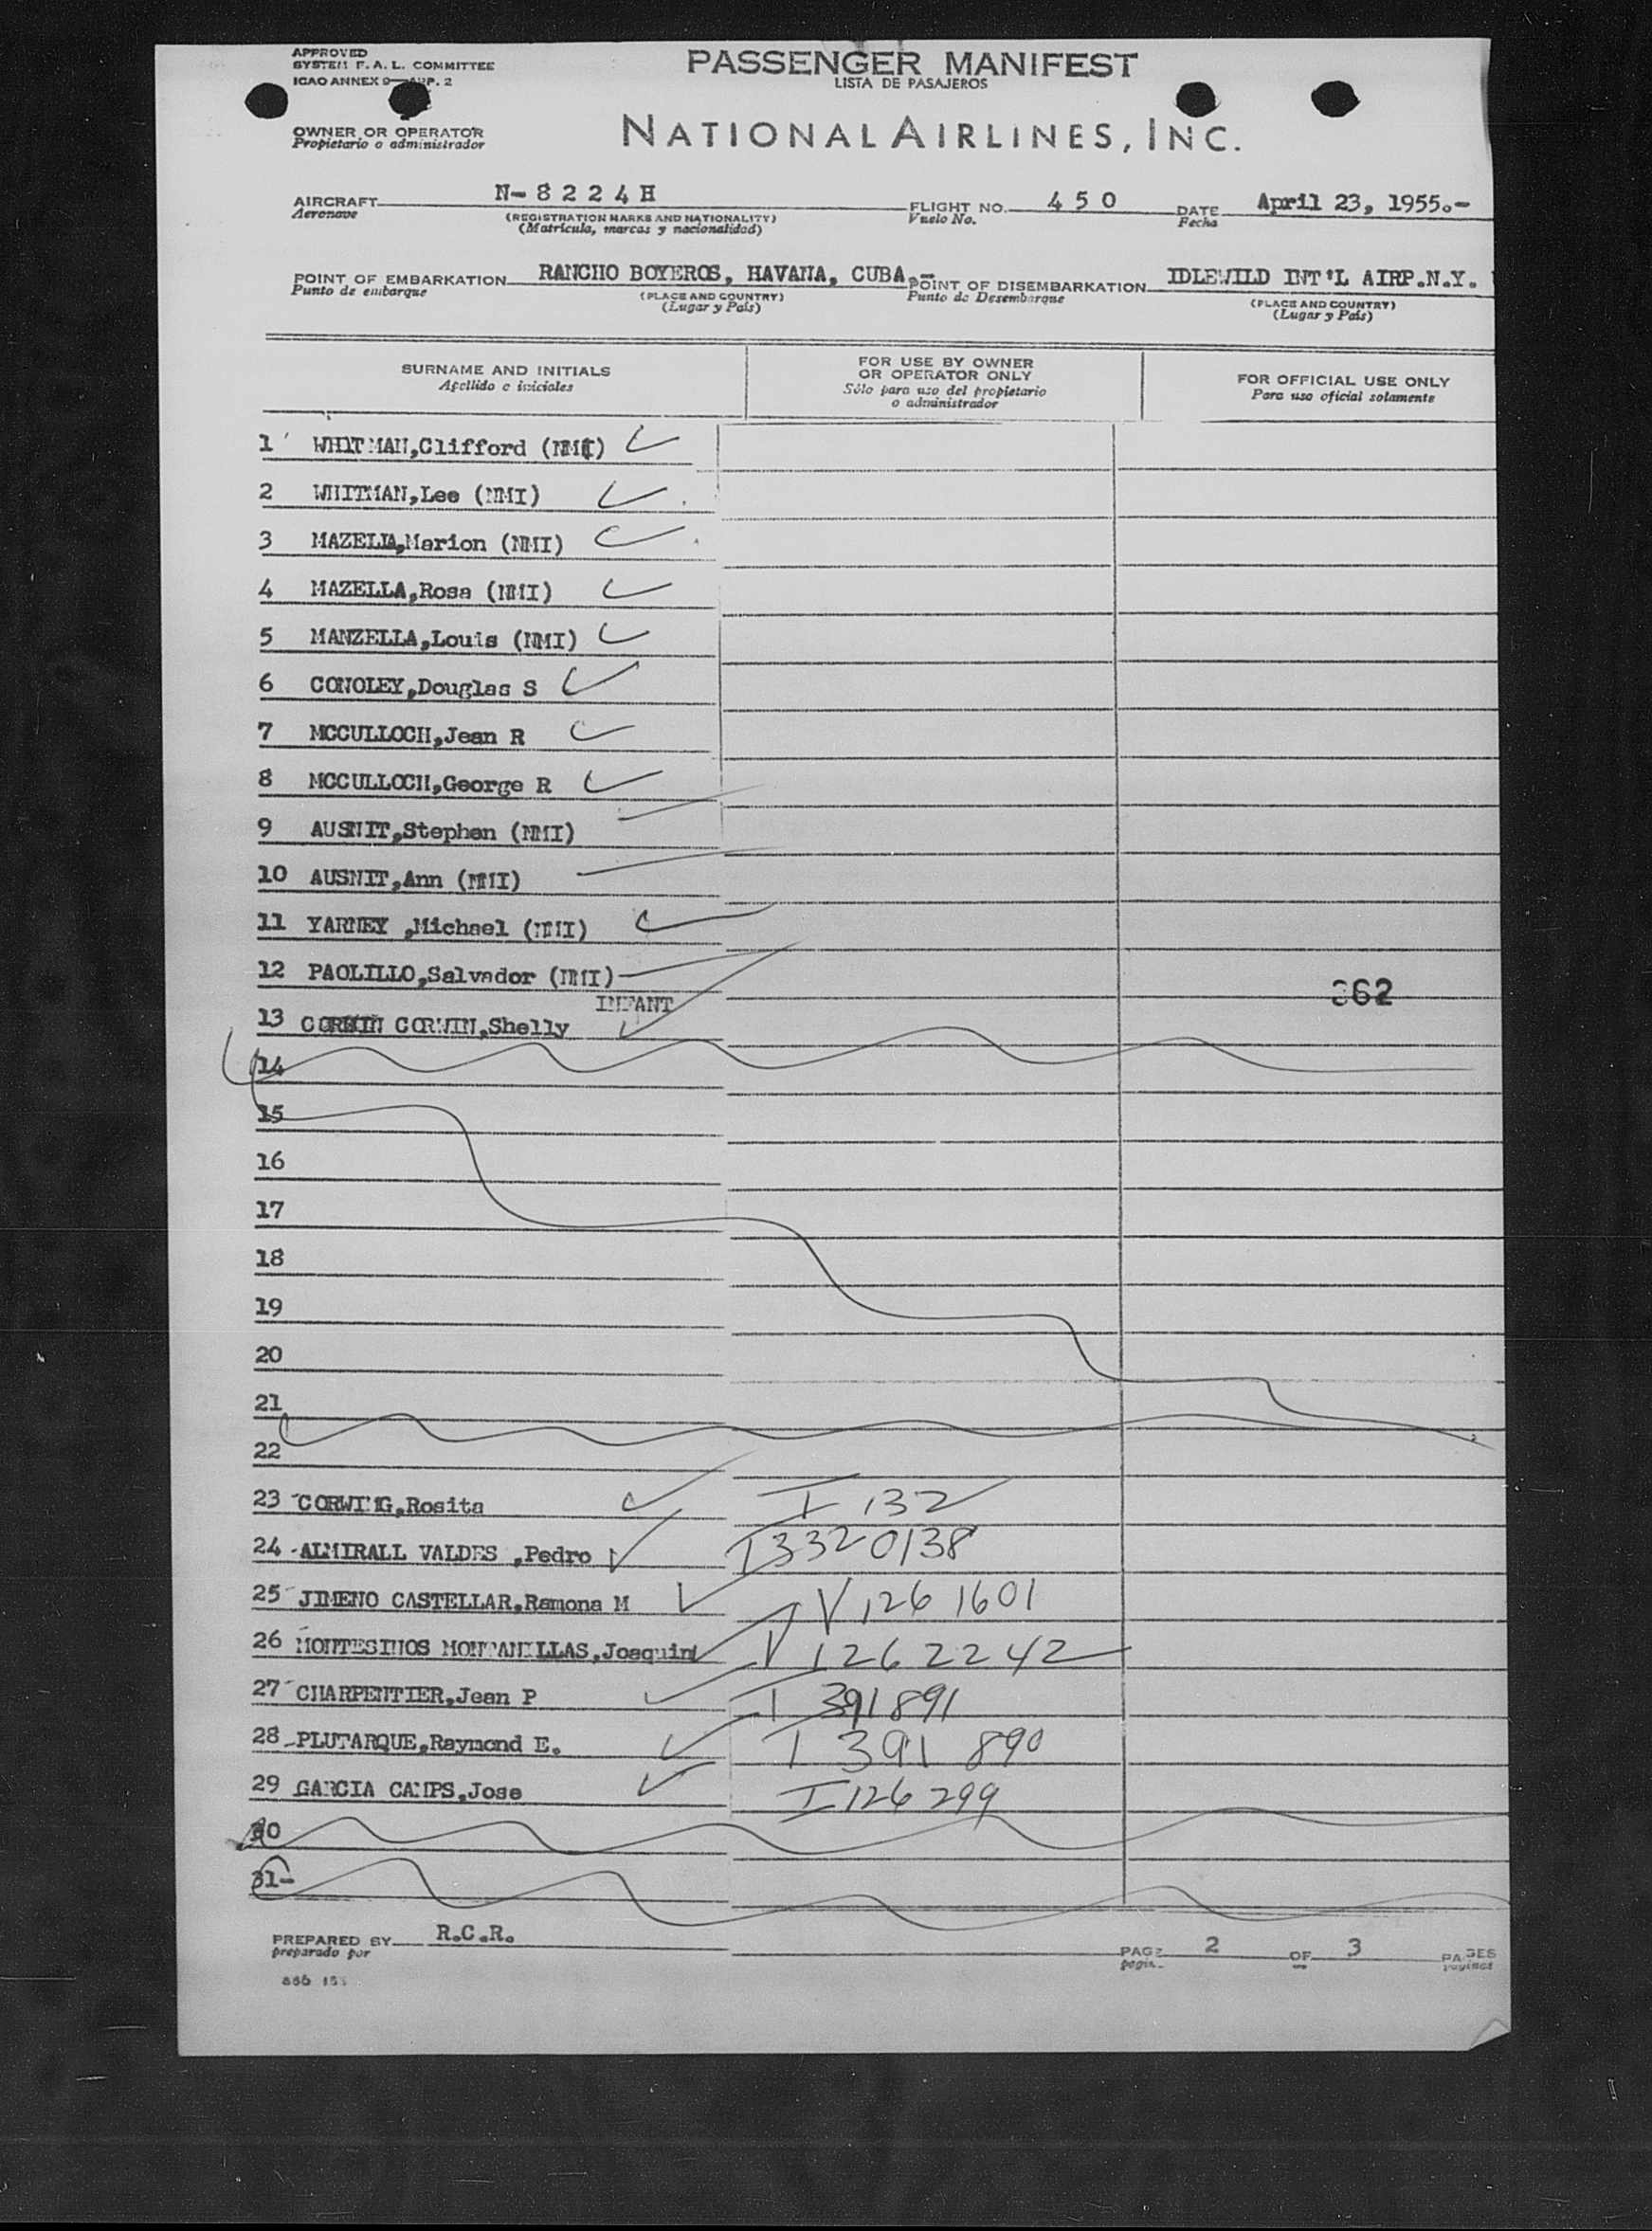 APPROVED
SYSTEM F. A. L. COMMITTEE
ICAO ANNEX 9—APP. 2
PASSENGER MANIFEST
LISTA DE PASAJEROS
OWNER OR OPERATOR
Propietario o administrador
NATIONAL AIRLINES, INC.
AIRCRAFT N-8 2 2 4 H FLIGHT NO. 4 5 0 DATE April 23, 1955.-
Aeronave (REGISTRATION MARKS AND NATIONALITY) Vuelo No. Fecha
(Matrícula, marcas y nacionalidad)
POINT OF EMBARKATION RANCHO BOYEROS, HAVANA, CUBA.- POINT OF DISEMBARKATION IDLEWILD INT'L AIRP.N.Y.
Punto de embarque (PLACE AND COUNTRY) Punto de Desembarque (PLACE AND COUNTRY)
(Lugar y País) (Lugar y País)
SURNAME AND INITIALS
Apellido e iniciales
FOR USE BY OWNER
OR OPERATOR ONLY
Sólo para uso del propietario
o administrador
FOR OFFICIAL USE ONLY
Para uso oficial solamente
1 WHITMAN,Clifford (NMI)
2 WHITMAN,Lee (NMI)
3 MAZELLA,Marion (NMI)
4 MAZELLA,Rosa (NMI)
5 MANZELLA,Louis (NMI)
6 CONOLEY,Douglas S
7 MCCULLOCH,Jean R
8 MCCULLOCH,George R
9 AUSNIT,Stephen (NMI)
10 AUSNIT,Ann (NMI)
11 YARNEY ,Michael (NMI)
12 PAOLILLO,Salvador (NMI)
362
INFANT
13 CORWIN,Shelly
14
15
16
17
18
19
20
21
22
23 CORWING,Rosita I 132
24 ALMIRALL VALDES ,Pedro I 3320138
25 JIMENO CASTELLAR,Ramona M V 1261601
26 MONTESINOS MONTANILLAS,Joaquin V 1262242
27 CHARPENTIER,Jean P I 391891
28 PLUTARQUE,Raymond E. I 391 890
29 GARCIA CAMPS,Jose I 126299
30
31-
PREPARED BY R.C.R. PAGE 2 OF 3 PAGES
preparado por